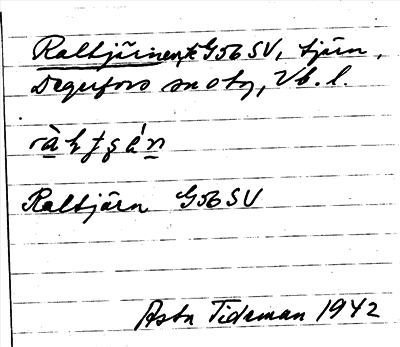 Raltjärnen, G56 SV, tjärn,
Degerfors sn o tg, Vb. l.
Raltjärn G56 SV
Asta Tideman 1942